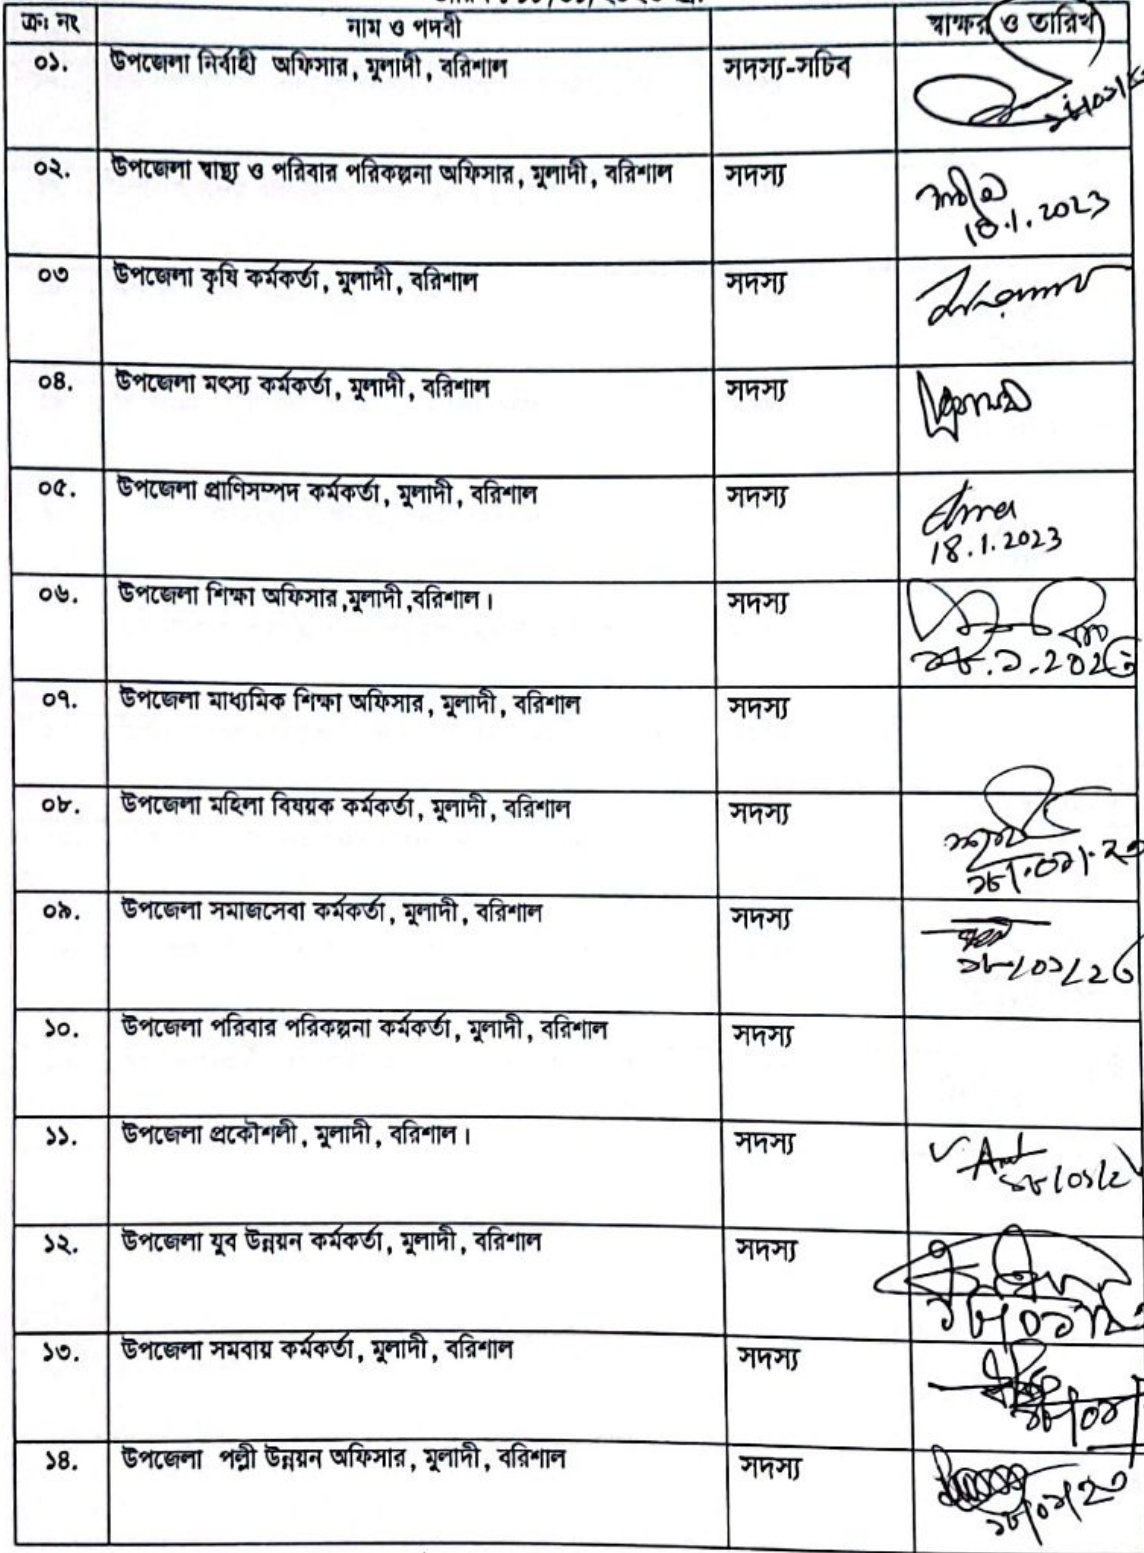 ক্রঃ নং নাম ও পদবী স্বাক্ষর ও তারিখ
০১. উপজেলা নির্বাহী অফিসার, মুলাদী, বরিশাল সদস্য-সচিব
০২. উপজেলা স্বাস্থ্য ও পরিবার পরিকল্পনা অফিসার, মুলাদী, বরিশাল সদস্য
18.1.2023
০৩ উপজেলা কৃষি কর্মকর্তা, মুলাদী, বরিশাল সদস্য
০৪. উপজেলা মৎস্য কর্মকর্তা, মুলাদী, বরিশাল সদস্য
০৫. উপজেলা প্রাণিসম্পদ কর্মকর্তা, মুলাদী, বরিশাল সদস্য
18.1.2023
০৬. উপজেলা শিক্ষা অফিসার,মুলাদী,বরিশাল। সদস্য
০৭. উপজেলা মাধ্যমিক শিক্ষা অফিসার, মুলাদী, বরিশাল সদস্য
০৮. উপজেলা মহিলা বিষয়ক কর্মকর্তা, মুলাদী, বরিশাল সদস্য
০৯. উপজেলা সমাজসেবা কর্মকর্তা, মুলাদী, বরিশাল সদস্য
১৮/০১/২৩
১০. উপজেলা পরিবার পরিকল্পনা কর্মকর্তা, মুলাদী, বরিশাল সদস্য
১১. উপজেলা প্রকৌশলী, মুলাদী, বরিশাল। সদস্য
১২. উপজেলা যুব উন্নয়ন কর্মকর্তা, মুলাদী, বরিশাল সদস্য
১৩. উপজেলা সমবায় কর্মকর্তা, মুলাদী, বরিশাল সদস্য
১৪. উপজেলা পল্লী উন্নয়ন অফিসার, মুলাদী, বরিশাল সদস্য
১৮/০১/২৩